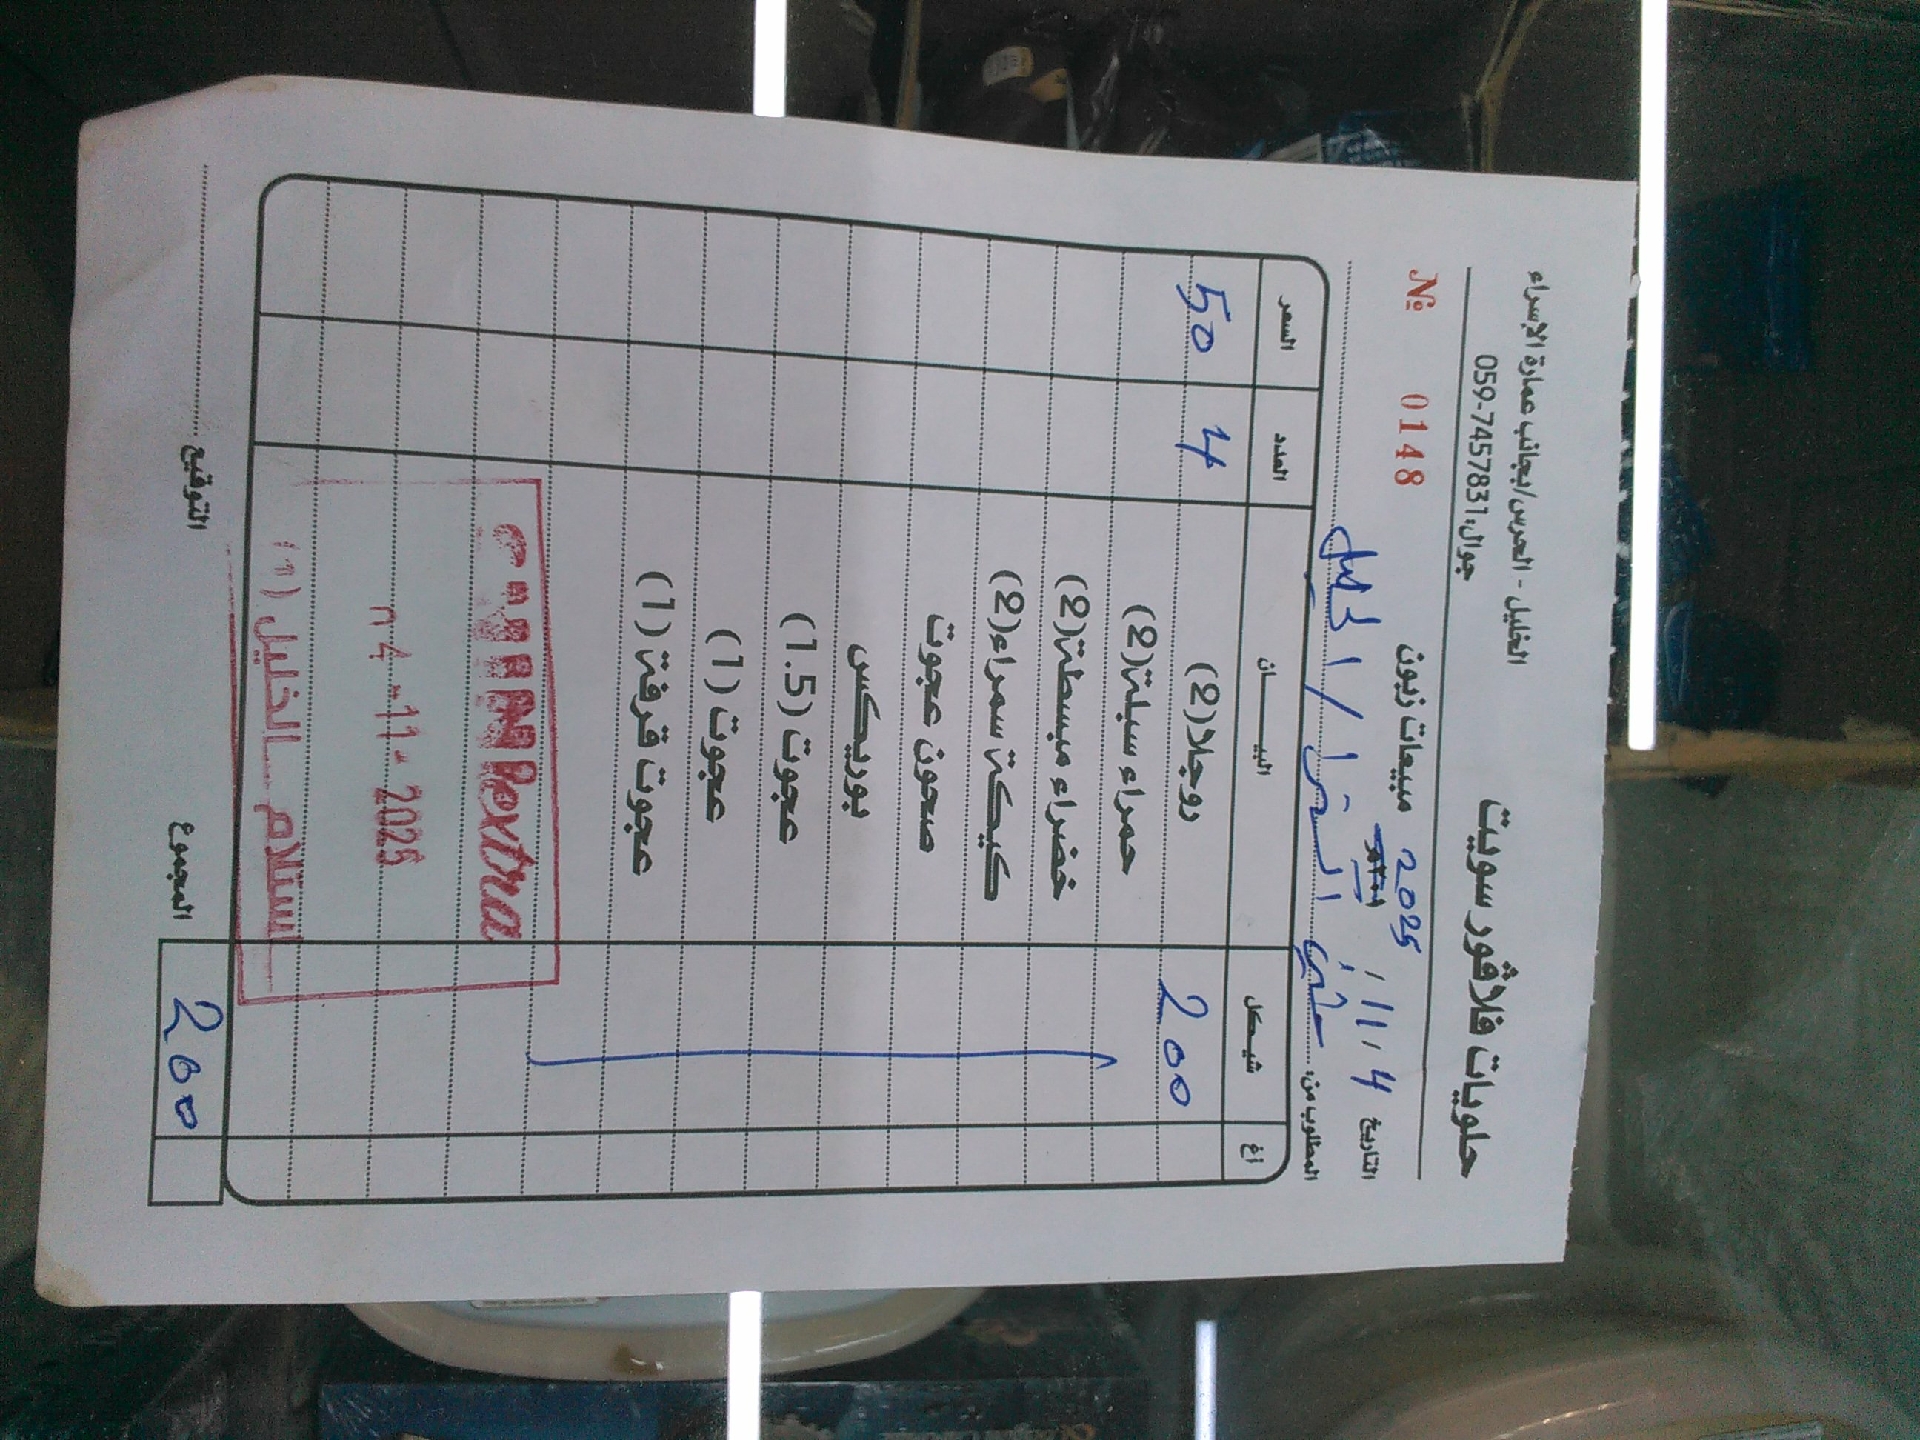 حلويات فلاڤور سويت
الخليل - الحرس/بجانب عمارة الإسراء
جوال: 059-7457831
مبيعات زبون
№ 0148
التاريخ 4 / 11 / 2025
المطلوب من: / الخليل
آغ شيكل البيــــان العدد السعر
200 روجلا(2) 4 50
حمراء سبلة(2)
خضراء مبسطة(2)
كيكة سمراء(2)
صحون عجوت
بوريكس
عجوت (1.5)
عجوت (1)
عجوت قرفة(1)
Rextra
04-11-2025
استلام الخليل (1)
المجموع 200
التوقيع